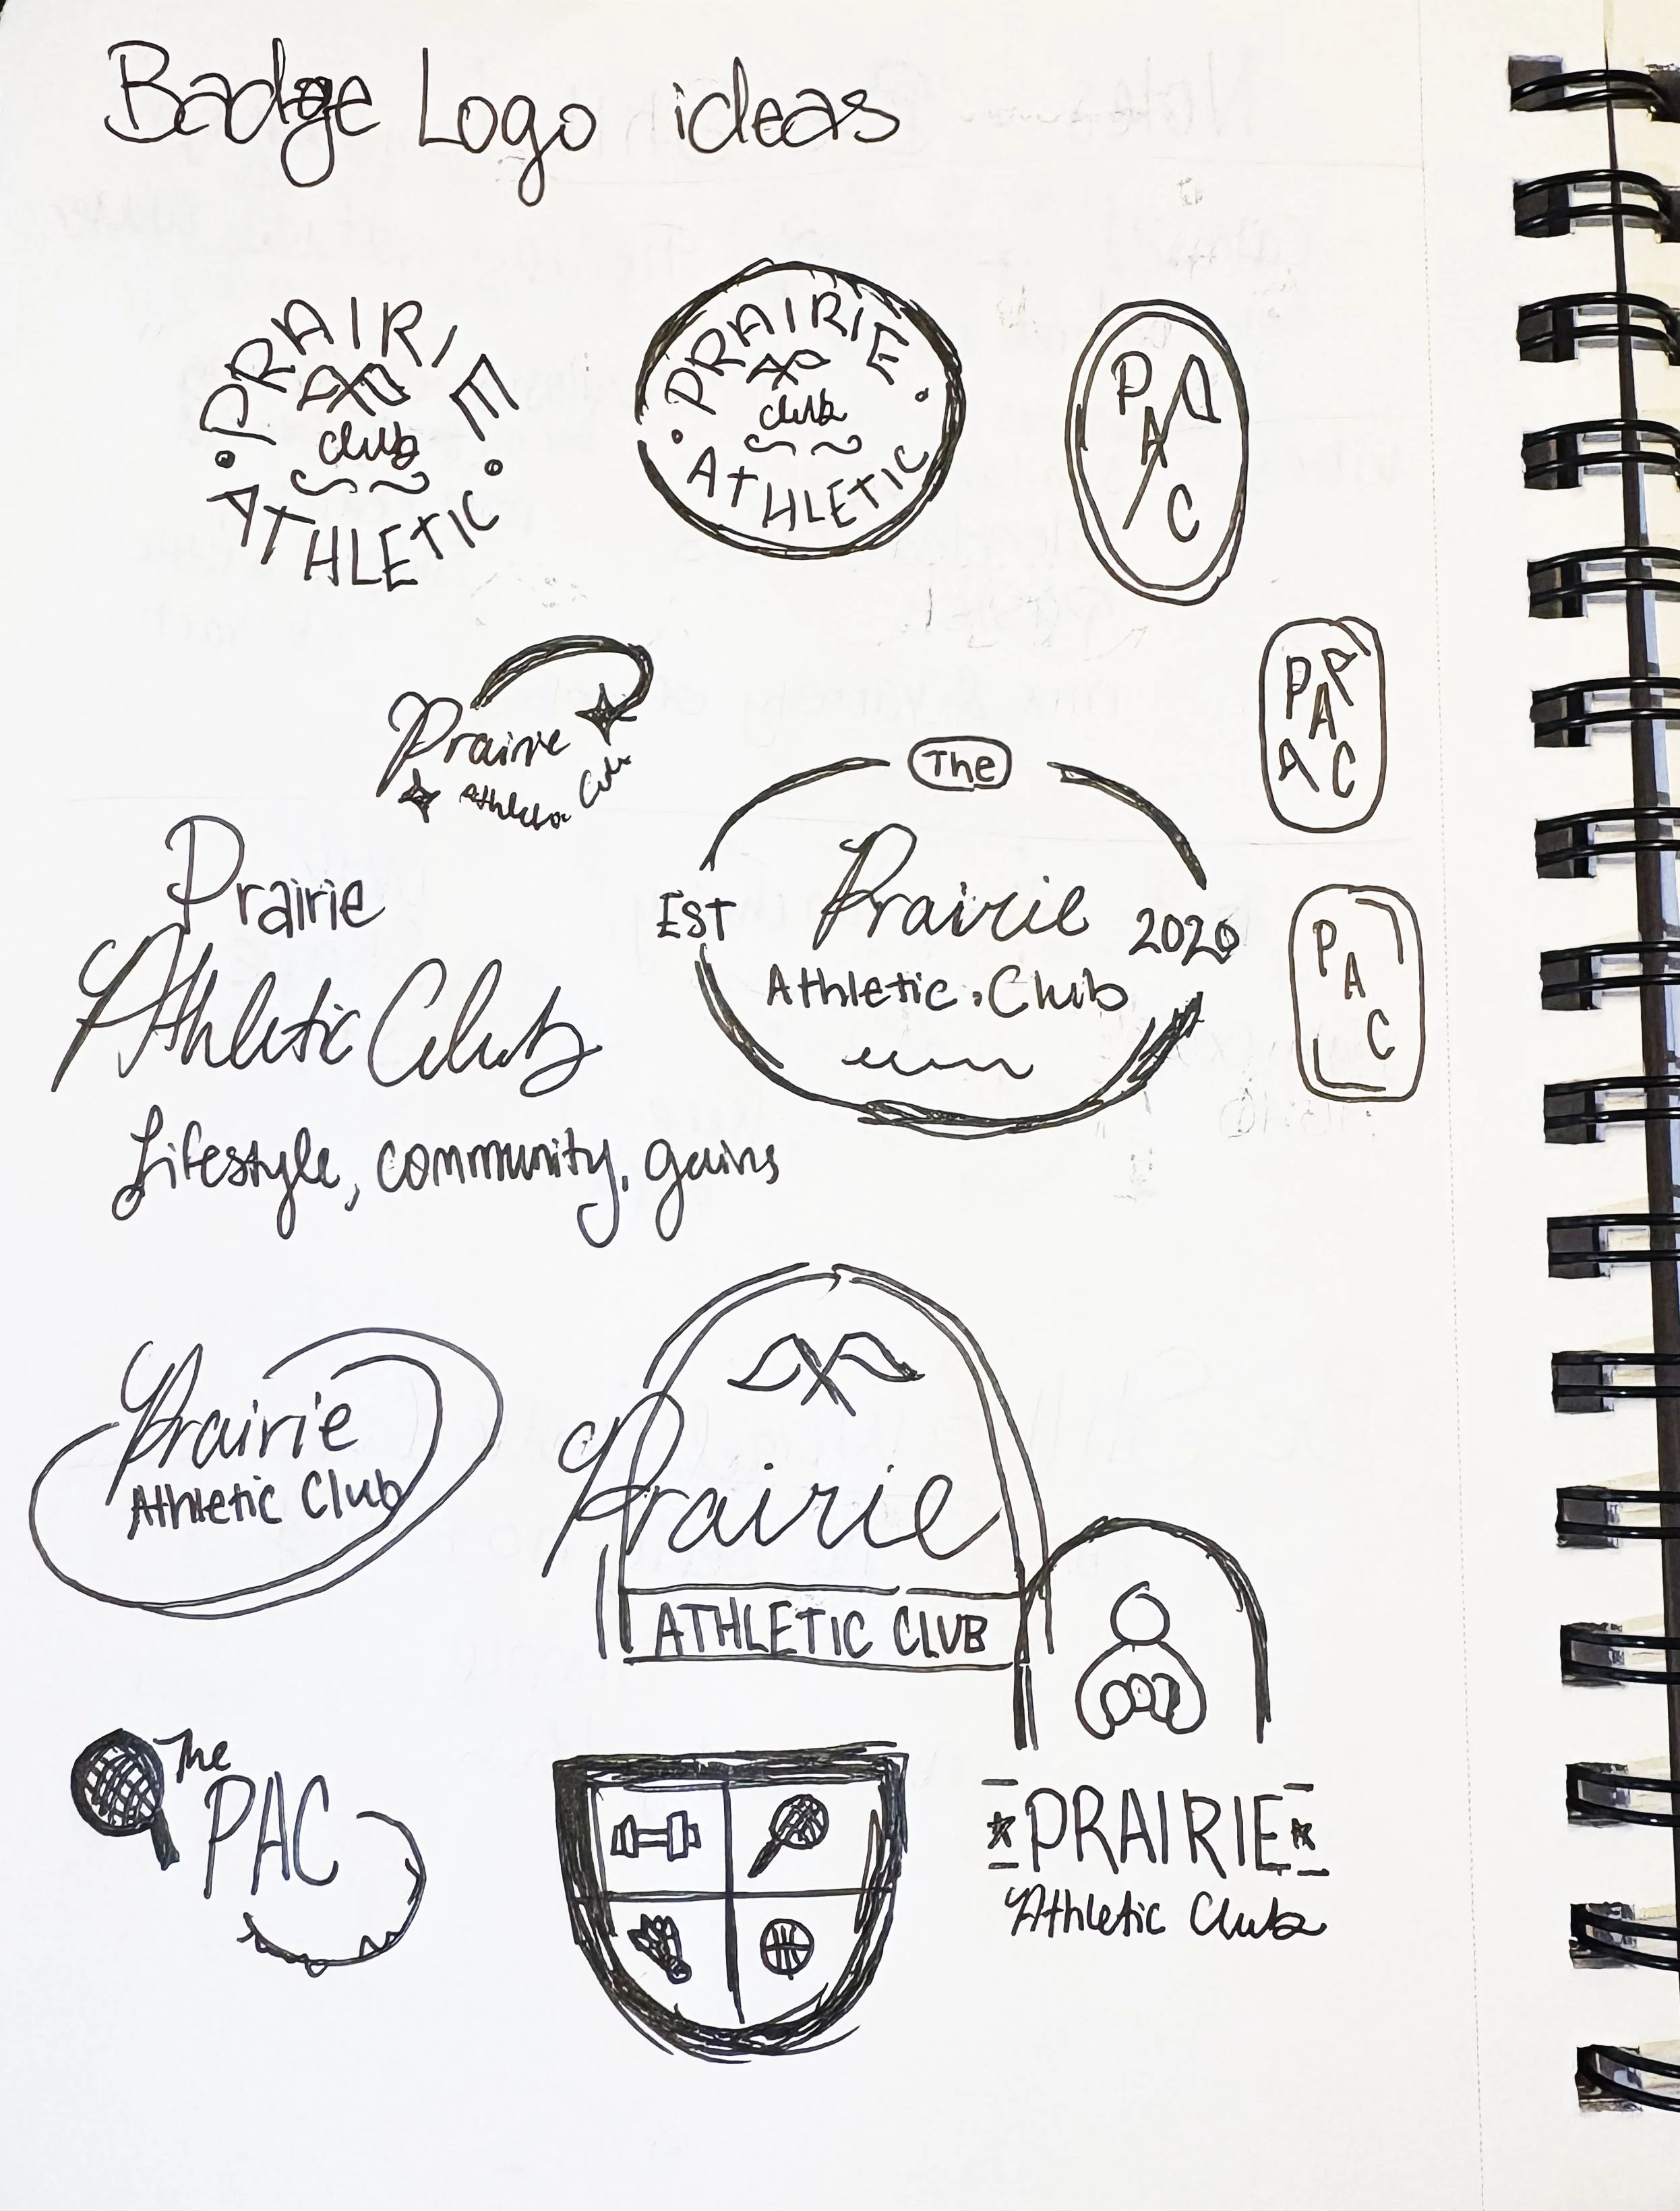 Badge Logo ideas
PRAIRIE
club
ATHLETIC
PRAIRIE
club
ATHLETIC
P
A
C
Prairie
Athletic Club
P
A
C
The
EST
Prairie
2020
Athletic . Club
Prairie
Athletic Club
Lifestyle, community, gains
P
A
C
Prairie
Athletic Club
Prairie
ATHLETIC CLUB
The
PAC
PRAIRIE
Athletic Club